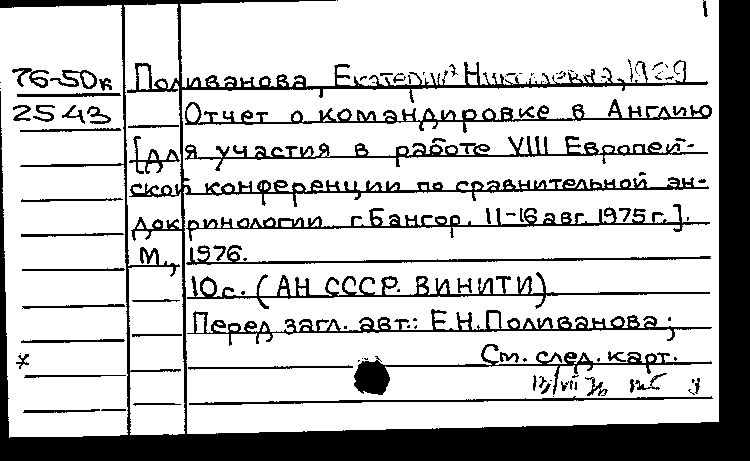 1
76-50к Поливанова, Екатерина Николаевна, 1929
2543 Отчет о командировке в Англию
[для участия в работе VIII Европей-
ской конференции по сравнительной эн-
докринологии г. Бангор. 11-16 авг. 1975 г.].
М., 1976.
10 с. (АН СССР. ВИНИТИ)
Перед загл. авт.: Е.Н. Поливанова;
См. след. карт.
13/VII 76